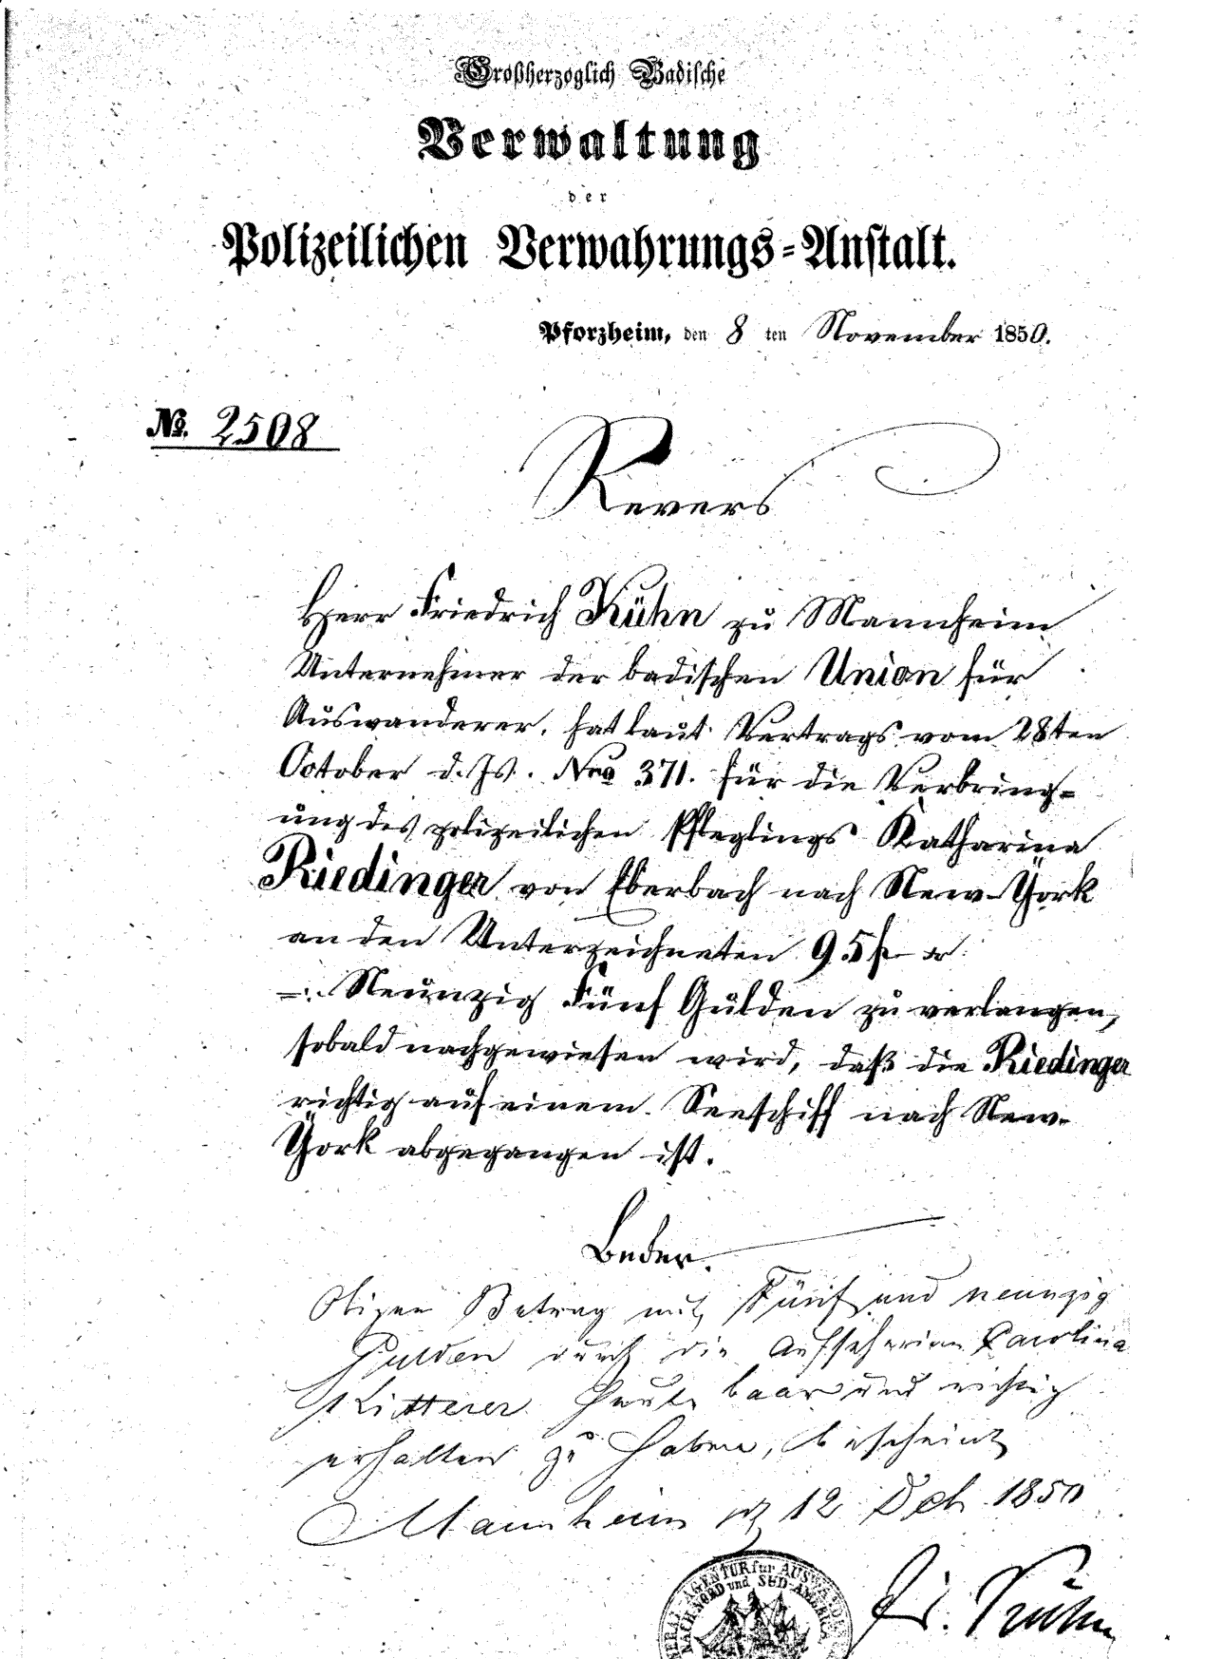 Großherzoglich Badische
Verwaltung
der
Polizeilichen Verwahrungs-Anstalt.
Pforzheim, den 8 ten November 1850.
No. 2508
Revers
Herr Friedrich Kühn zu Mannheim
Unternehmer der badischen Union für
Auswanderer, hat laut Vertrags vom 28ten
October d. Js. Nro 371. für die Verbring-
ung des polizeilichen Pfleglings Katharina
Riedinger von Eberbach nach New-York
an den Unterzeichneten 95 f – xr.
=: Neunzig Fünf Gulden zu verlangen,
sobald nachgewiesen wird, daß die Riedinger
richtig auf einem Seeschiff nach New-
York abgegangen ist.
Obigen Betrag mit Fünf und neunzig
Gulden durch die Aufseherinn Carolina
Kitterer heute baar und richtig
erhalten zu haben, bescheint
Mannheim 12 Dcb 1850
GENERAL-AGENTUR für AUSWANDERER
NACH NORD und SÜD-AMERICA
Fr. Kühn